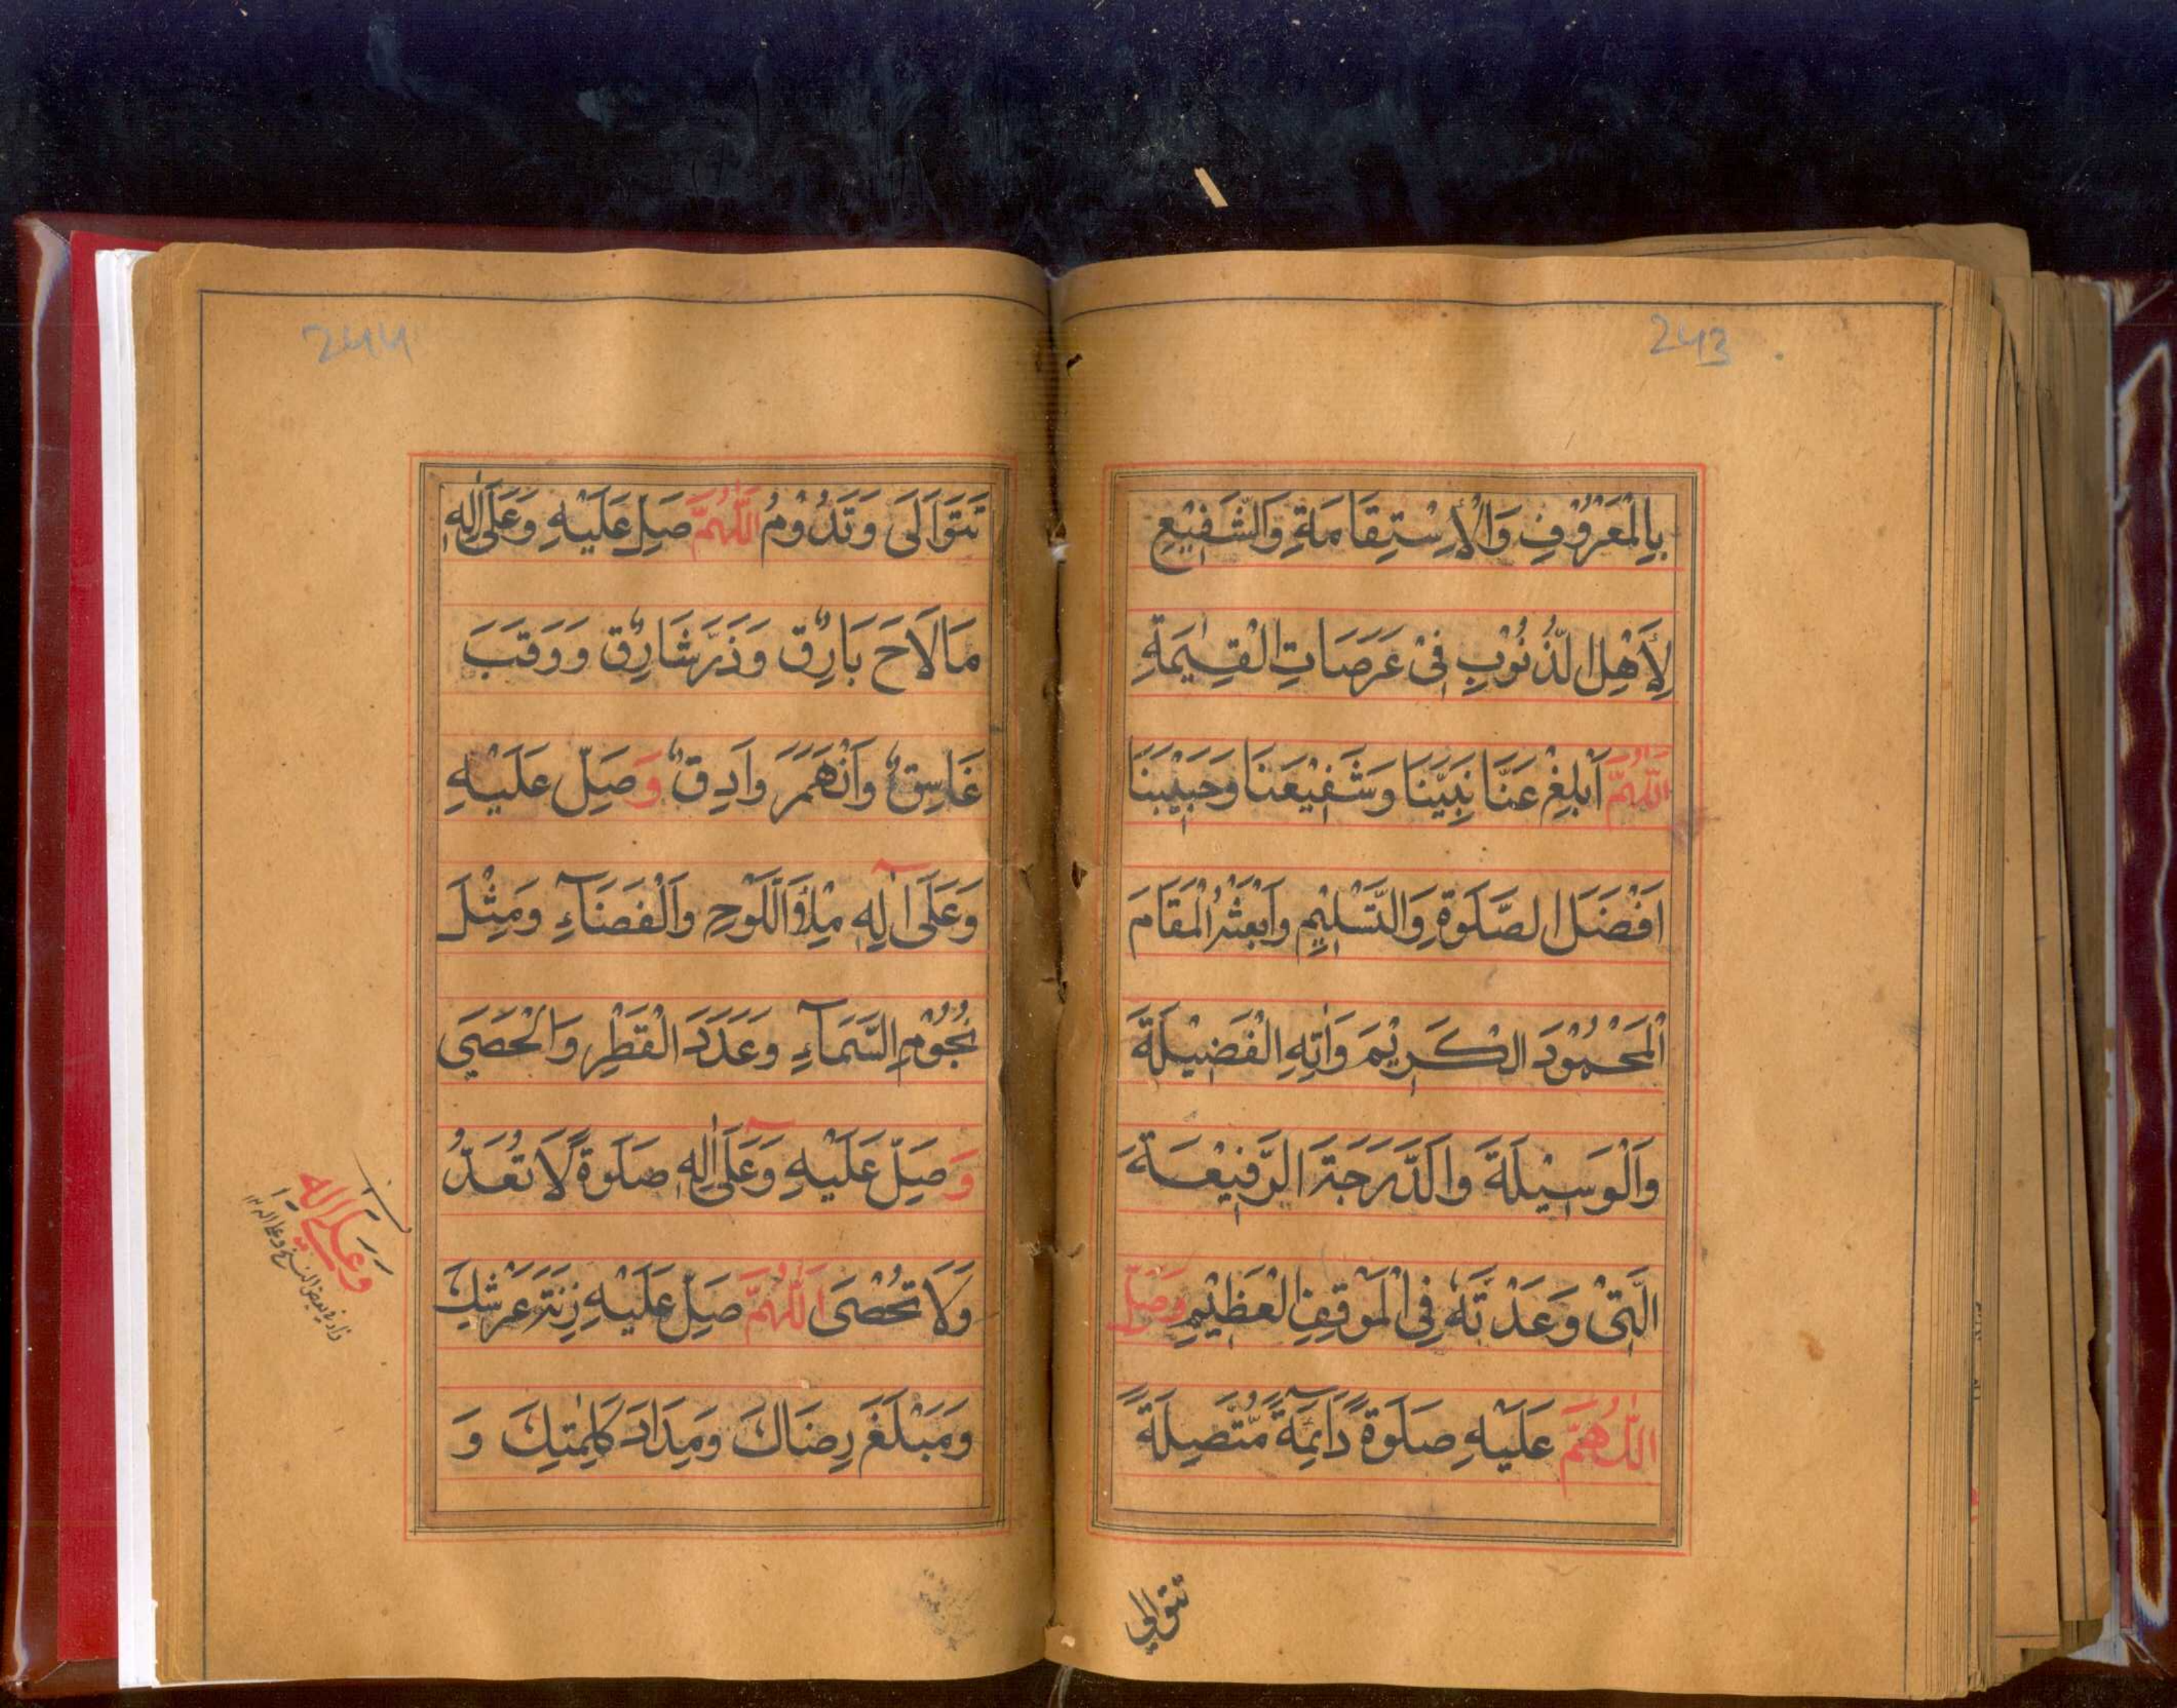 243
بِالْمَعْرُوْفِ وَالْاِسْتِقَامَةِ وَالشَّفِيْعِ
لِأَهْلِ الذُّنُوْبِ فِىْ عَرَصَاتِ الْقِيٰمَةِ
اَللّٰهُمَّ اَبْلِغْ عَنَّا نَبِيَّنَا وَشَفِيْعَنَا وَحَبِيْبَنَا
اَفْضَلَ الصَّلٰوةِ وَالتَّسْلِيْمِ وَابْعَثْهُ الْمَقَامَ
الْمَحْمُوْدَ الْكَرِيْمَ وَاٰتِهِ الْفَضِيْلَةَ
وَالْوَسِيْلَةَ وَالدَّرَجَةَ الرَّفِيْعَةَ
الَّتِىْ وَعَدْتَهٗ فِى الْمَوْقِفِ الْعَظِيْمِ وَصَلِّ
اَللّٰهُمَّ عَلَيْهِ صَلٰوةً دَآئِمَةً مُّتَّصِلَةً
تتوالى
244
تَتَوَالَى وَتَدُوْمُ اَللّٰهُمَّ صَلِّ عَلَيْهِ وَعَلٰى اٰلِهٖ
مَا لَاحَ بَارِقٌ وَذَرَّ شَارِقٌ وَوَقَبَ
غَاسِقٌ وَانْهَمَرَ وَادِقٌ وَصَلِّ عَلَيْهِ
وَعَلٰى اٰلِهٖ مِلْؤَ اللَّوْحِ وَالْفَضَآءِ وَمِثْلَ
نُجُوْمِ السَّمَآءِ وَعَدَدَ الْقَطْرِ وَالْحَصَى
وَصَلِّ عَلَيْهِ وَعَلٰى اٰلِهٖ صَلٰوةً لَا تُعَدُّ
وَلَا تُحْصَى اَللّٰهُمَّ صَلِّ عَلَيْهِ زِنَةَ عَرْشِكَ
وَمَبْلَغَ رِضَاكَ وَمِدَادَ كَلِمٰتِكَ وَ
وَعَلٰى اٰلِهٖ
زاد فى بعض النسخ وعلى اله ١٢